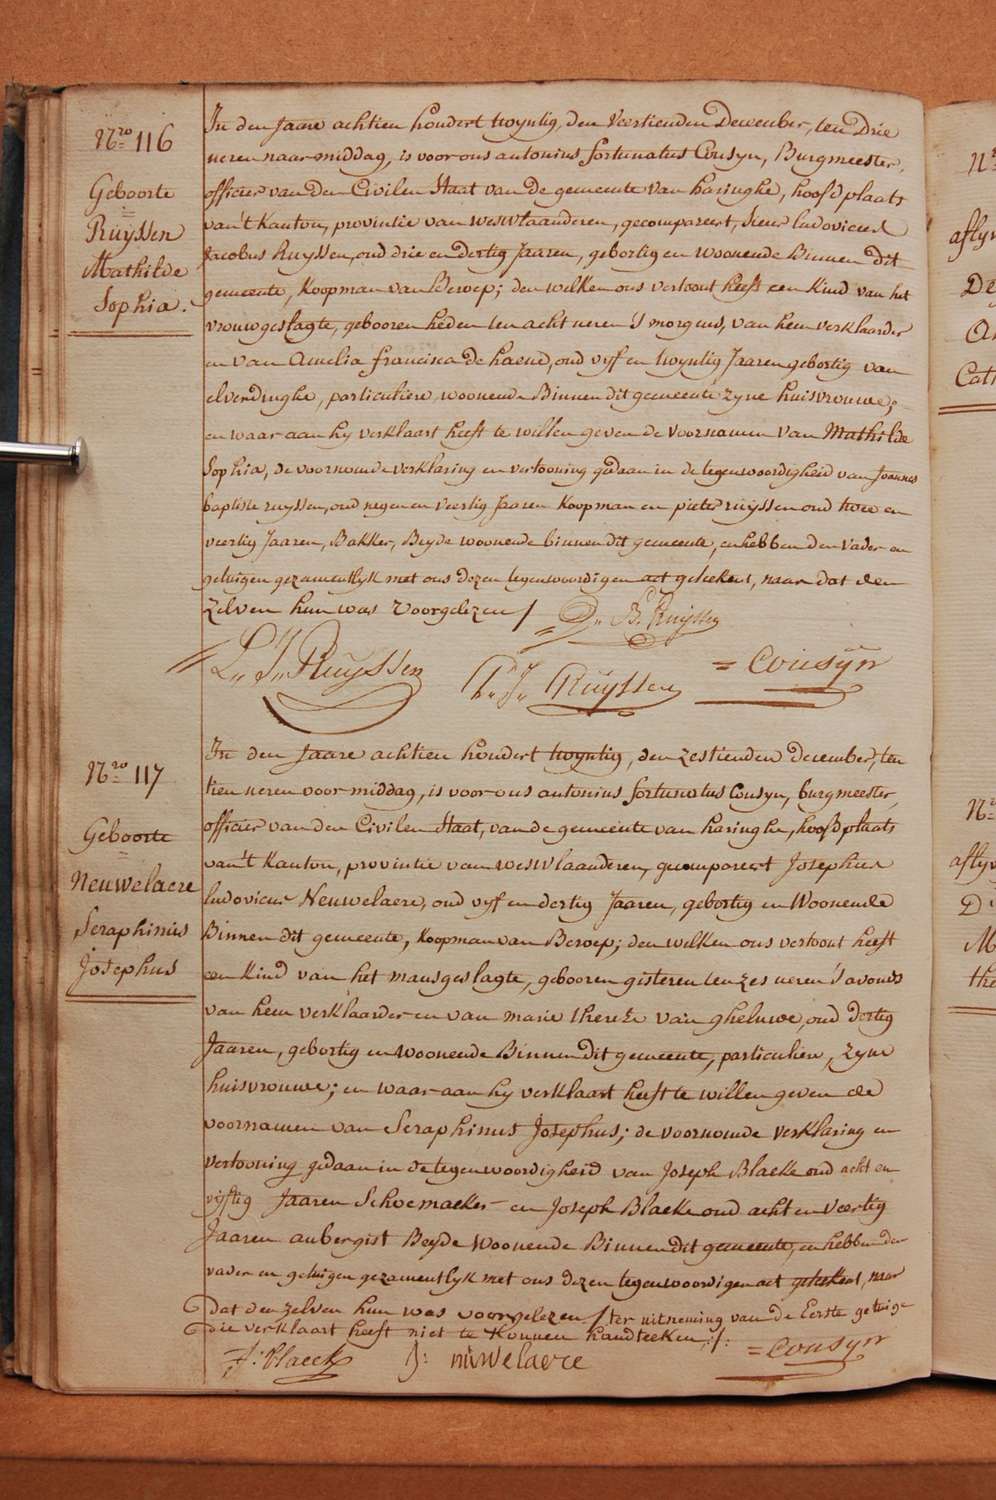 Nro 116
Geboorte
Ruÿssen
Mathilde
Sophia.
In den Jaare achtien hondert twyntig, den Veertienden December, ten Drie
ueren naar middag, is voor ons antonius fortunatus Cousyn, Burgmeester,
officier van den Civilen Staat van de gemeente van haringhe, hoofdplaats
van 't Kanton, provintie van westvlaanderen, gecompareert, Sieur Ludovicus
Jacobus Ruyssen, oud drie en dertig Jaaren, gebortig en woonende Binnen dit
gemeente, Koopman van Beroep; den welken ons vertoont heeft een Kind van het
vrouwgeslagte, gebooren heden ten acht ueren 's morgens, van hem verklaarder
en van Amelia francisca de haene, oud vyf en twyntig Jaaren gebortig van
elverdinghe, particuliere, woonende Binnen dit gemeente zyne huisvrouwe;
en waar aan hy verklaart heeft te willen geven de voornamen van Mathilde
Sophia, de voornoemde verklaring en vertooning gedaan in de tegenwoordigheid van Joannes
baptiste ruyssen, oud negen en veertig Jaaren Koopman en pieter ruÿssen oud twee en
veertig Jaaren, Bakker, Beyde woonende binnen dit gemeente, en hebben den vader en
getuigen gezamentlyk met ons dezen tegenwoordigen act geteekent, naar dat den
zelven hun was Voorgelezen /
B. Ruijssen
L. J. Ruÿssen
P. J. Ruÿssen
= Cousÿn
Nro 117
Geboorte
Neuwelaere
Seraphinus
Josephus
In den Jaare achtien hondert twyntig, den zestienden december, ten
tien ueren voor middag, is voor ons antonius fortunatus Cousyn, burgmeester,
officier van den Civilen Staat, van de gemeente van haringhe, hoofdplaats
van 't Kanton, provintie van westvlaanderen, gecompareert Josephus
ludovicus Neuwelaere, oud vyf en dertig Jaaren, gebortig en Woonende
Binnen dit gemeente, Koopman van Beroep; den welken ons vertoont heeft
een Kind van het mansgeslagte, gebooren gisteren ten zes ueren 's avonds
van hem verklaarder en van marie therese van gheluwe, oud dertig
Jaaren, gebortig en woonende Binnen dit gemeente, particuliere, zyne
huisvrouwe; en waar aan hy verklaart heeft te willen geven de
voornamen van Seraphinus Josephus; de voornoemde verklaring en
vertooning gedaan in de tegenwoordigheid van Joseph Blaeke oud acht en
vyftig Jaaren Schoemaeker en Joseph Blaeke oud acht en Veertig
Jaaren aubergist Beyde Woonende Binnen dit gemeente, en hebben den
vader en getuigen gezamentlyk met ons dezen tegenwoordigen act geteekent, naar
dat den zelven hun was voorgelezen / ter uitneming van de Eerste getuige
die verklaart heeft niet te Konnen handteeken /:
J: blaeck
J: niwelaere
= Cousÿn
Nro